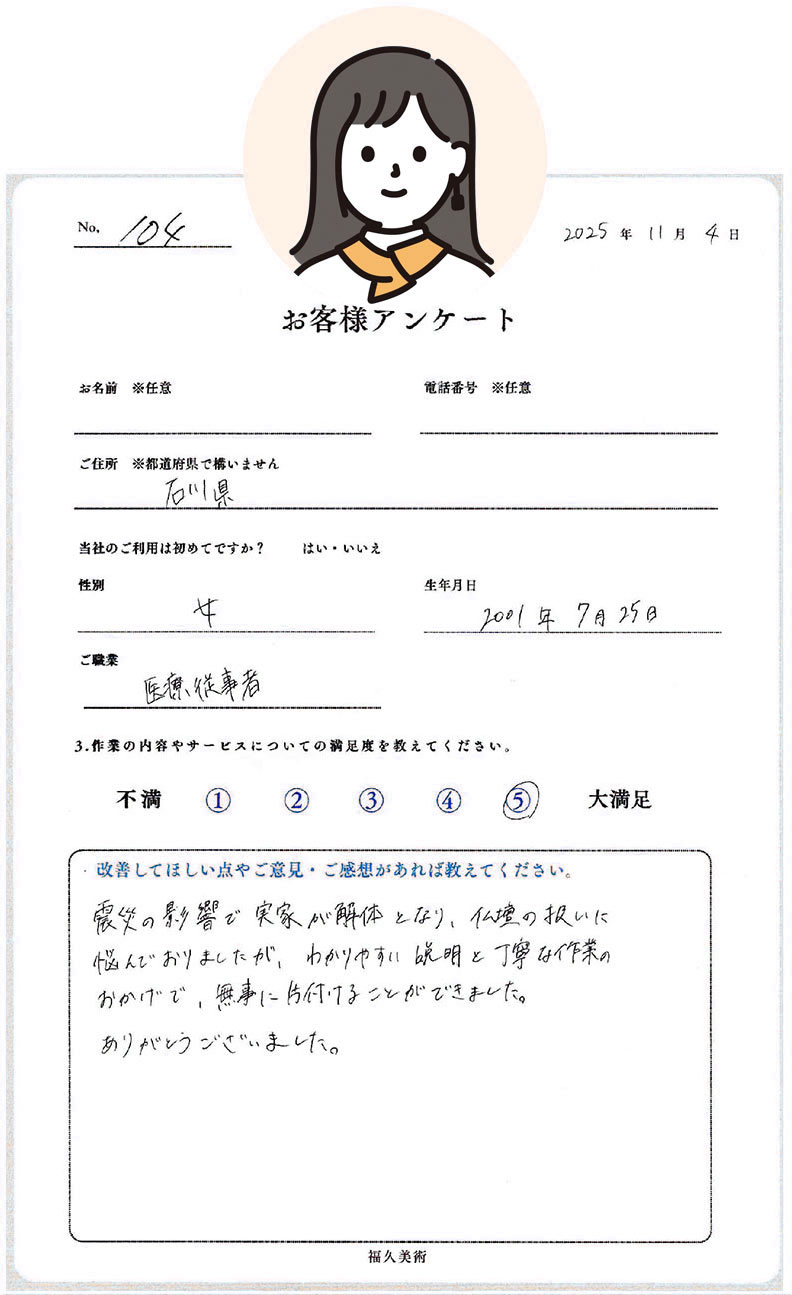 No, 104
2025 年 11 月 4 日
お客様アンケート
お名前 ※任意
電話番号 ※任意
ご住所 ※都道府県で構いません
石川県
当社のご利用は初めてですか？ はい・いいえ
性別
女
生年月日
2001年 7月 25日
ご職業
医療従事者
3.作業の内容やサービスについての満足度を教えてください。
不満 ① ② ③ ④ ⑤ 大満足
・改善してほしい点やご意見・ご感想があれば教えてください。
震災の影響で実家が解体となり、仏壇の扱いに
悩んでおりましたが、わかりやすい説明と丁寧な作業の
おかげで、無事に片付けることができました。
ありがとうございました。
福久美術